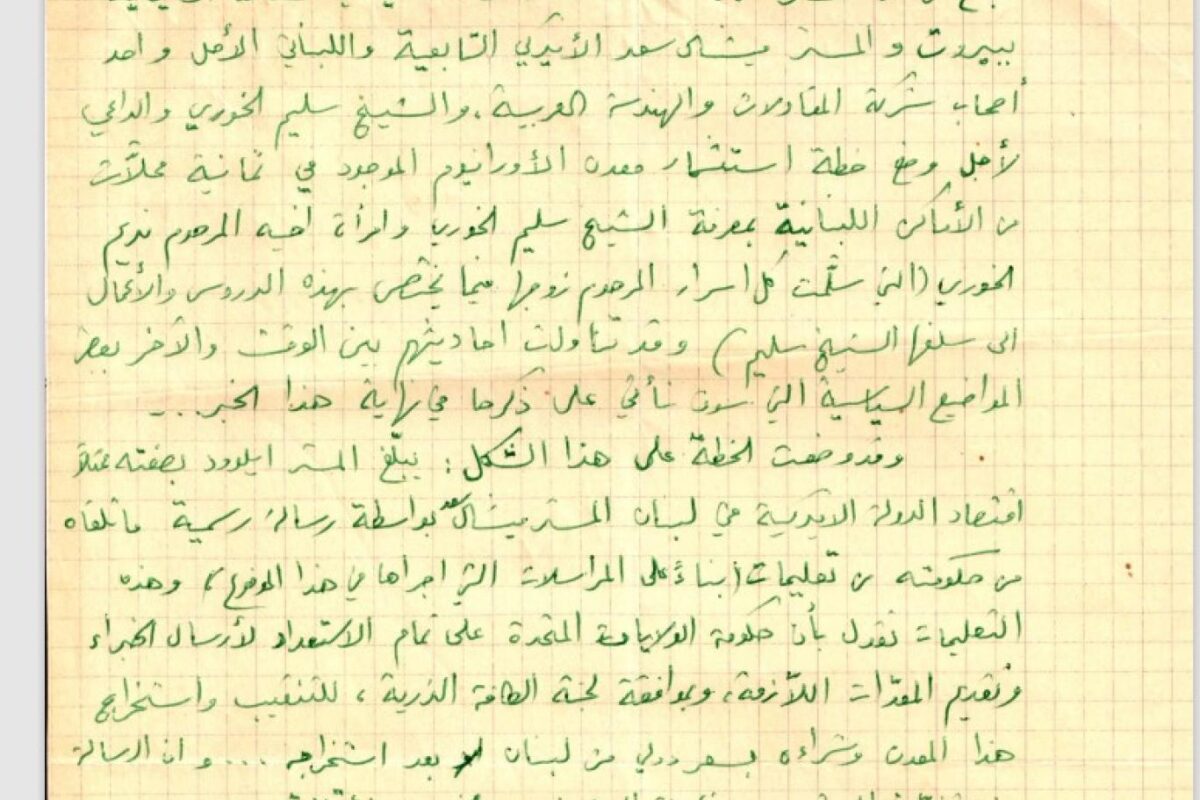 ببيروت و المستر ميشال سعد الأميركي التابعية واللبناني الأصل واحد
أصحاب شركة المقاولات والهندسة العربية، والشيخ سليم الخوري والداعي
لأجل وضع خطة استثمار معدن الأورانيوم الموجود في ثمانية محلّات
من الأماكن اللبنانية بمعرفة الشيخ سليم الخوري وامرأة أخيه المرحوم نديم
الخوري (التي سلّمت كل أسرار المرحوم زوجها فيما يختص بهذه الدروس والأعمال
الى سلفها الشيخ سليم) وقد تناولت احاديثهم بين الوقت والآخر بعض
المواضيع السياسية التي سوف نأتي على ذكرها في نهاية هذا الخبر...
وقد وضعت الخطة على هذا الشكل: يبلّغ المستر ايلوود بصفته ممثلاً
اقتصاد الدولة الاميركية في لبنان المستر ميشال سعد بواسطة رسالة رسمية ما تلقاه
من حكومته من تعليمات (بناءً على المراسلات التي اجراها في هذا الموضوع) وهذه
التعليمات تقول بأن حكومة الولايات المتحدة على تمام الاستعداد لأرسال الخبراء
وتقديم المعدّات اللاّزمة، وبموافقة لجنة الطاقة الذرية، للتنقيب واستخراج
هذا المعدن وشراءه بسعر دولي من لبنان بعد استخراجه .... وان الرسالة